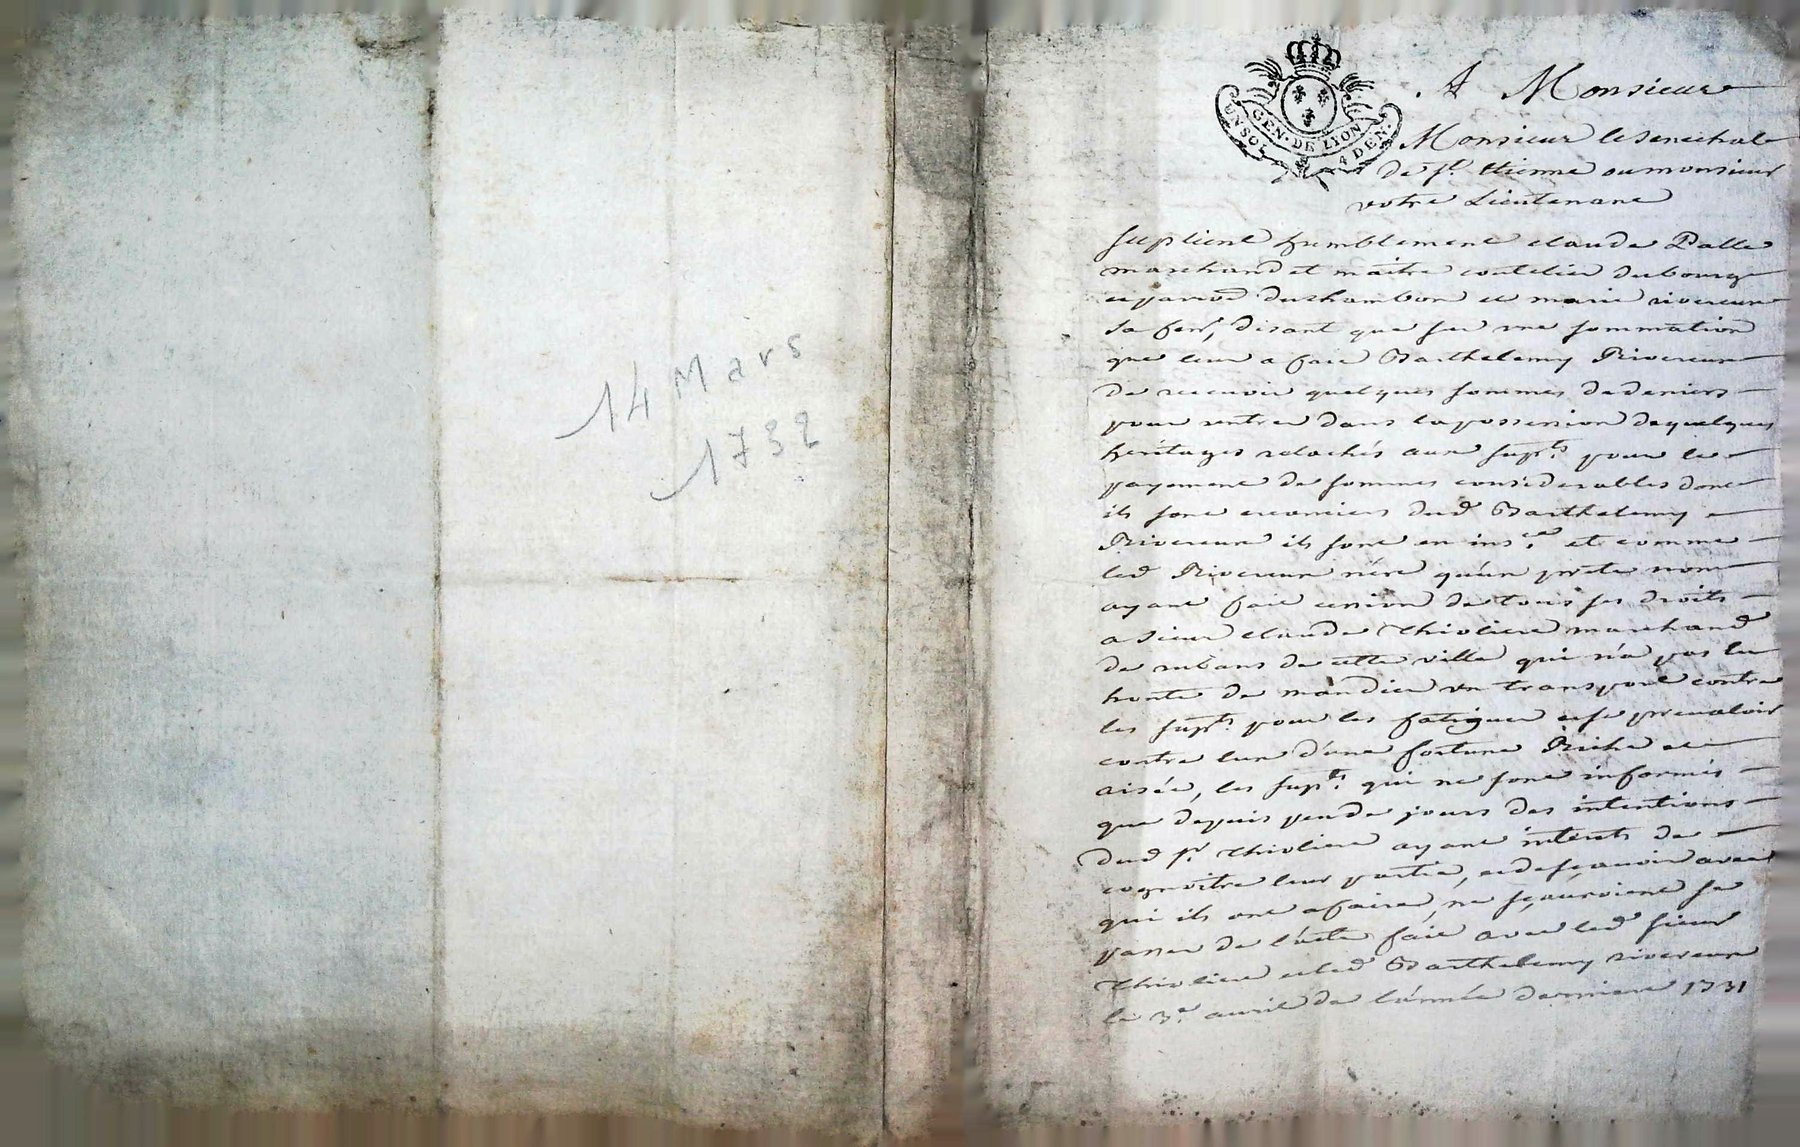 14 Mars
1732
GEN. DE LYON
UN SOL 4 DEN.
A Monsieur
Monsieur le senechal
de st. Etienne ou monsieur
votre Lieutenant
suplient humblement claude Palle
marchand et maitre coutelier du bourg
et parroe du chambon et marie rivereur
sa fem, disant que sur une sommation
que leur a fait Barthelemy Rivereur
de recevoir quelques sommes de deniers
pour rentrer dans la possession de quelques
héritages relachés aux supts. pour le
payement de sommes considerables dont
ils sont creanciers dud Barthelemy
Rivereur ils sont en ins.ce et comme
led Rivereur n'ére qu'un prete nom
ayant fait cession de tous ses droits
a sieur claude Thioliere marchand
de rubans de cette ville qui n'a pas eu
honte de mandier un transport contre
les supts. pour les fatiguer et se prevaloir
contre eux d'une fortune Riche et
aisée, les supts. qui ne sont informés
que depuis peu de jours des intentions
dud sr. Thioliere ayant interets de
cognoitre leur partie, et de sçavoir avec
qui ils ont afaire, ne sçauroient se
passer de l'acte fait avec led sieur
Thioliere et led Barthelemy rivereur
le 3e. avril de l'année derniere 1731